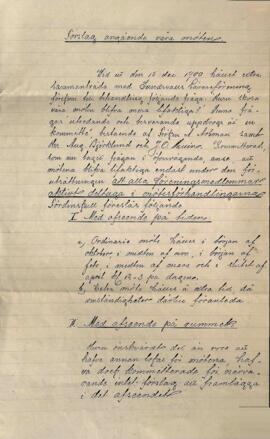 Förslag angående våra möten
Vid ett den 15 dec 1900 hållet extra
sammanträde med Sundsvalls Lärareförening
förekom till behandling följande fråga: huru skola
våra möten blifva mera lifaktiga? Denna frå-
gas utredande och besvarande uppdrogs åt en
kommitté, bestående af Fröken A Nyman samt
Hr Aug Björklund och J.O.
som nu tagit frågan i öfvervägande, anse att
mötena blifva lifaktiga endast under den för-
utsättningen att alla föreningsmedlemmar
aktivt deltaga i mötesförhandlingarna
föreslår följande
I. Med afseende på tiden.
a, Ordinarie möte hålles i början af
oktober, i midten af nov, i början af
feb, i midten af mars och i slutet af
april kl på dagen.
b, Extra möte hålles å andra tid, då
omständigheter därtill föranleda
II. Med afseende på rummet
Huru önskvärdt det än vore att
hafva annan lokal för mötena, haf-
va dock kommitterade för närva-
rande intet förslag att framlägga
i det afseendet